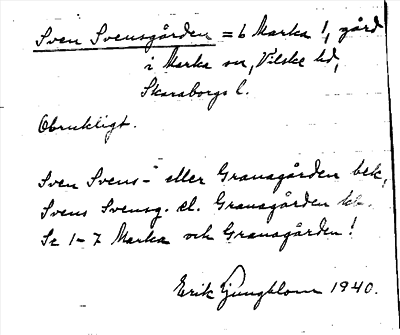 Sven Svensgården = 6 Marka !, gård
i Marka sn, Vilske hd,
Skaraborgs l.
Obrukligt.
Sven Svens- eller Granagården bek.
Svens Svensg. el. Granagården
Se 1-7 Marka och Granagården!
Erik Ljungblom 1940.